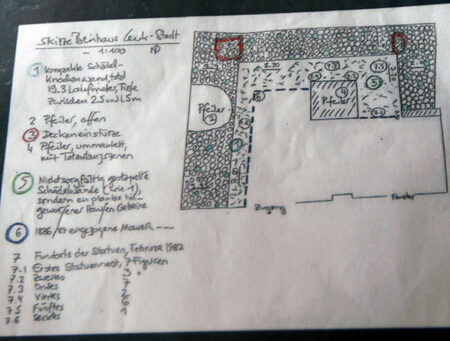 Skizze Beinhaus Leuk-Stadt
~ 1:100
1 Kompakte Schädel-
Knochenwand, total
19.3 Laufmeter, Tiefe
zwischen 2.5 und 1.5m
2 Pfeiler, offen
3 Deckeneinstürze
4 Pfeiler, ummantelt,
mit Totentanzszenen
5 Nicht sorgfältig gestapelte
Schädelwände (wie 1),
sondern ein planlos hin-
geworfener Haufen Gebeine
6 eingezogene Mauer ---
7 Fundorte der Statuen, Februar 1982
7.1 Erstes Statuennest, 7 Figuren
7.2 Zweites 3 "
7.3 Drittes 7
7.4 Viertes 2
7.5 Fünftes 6
7.6 Sechstes 1
Pfeiler
2
Pfeiler
4
5
6
1
Zugang
Fenster